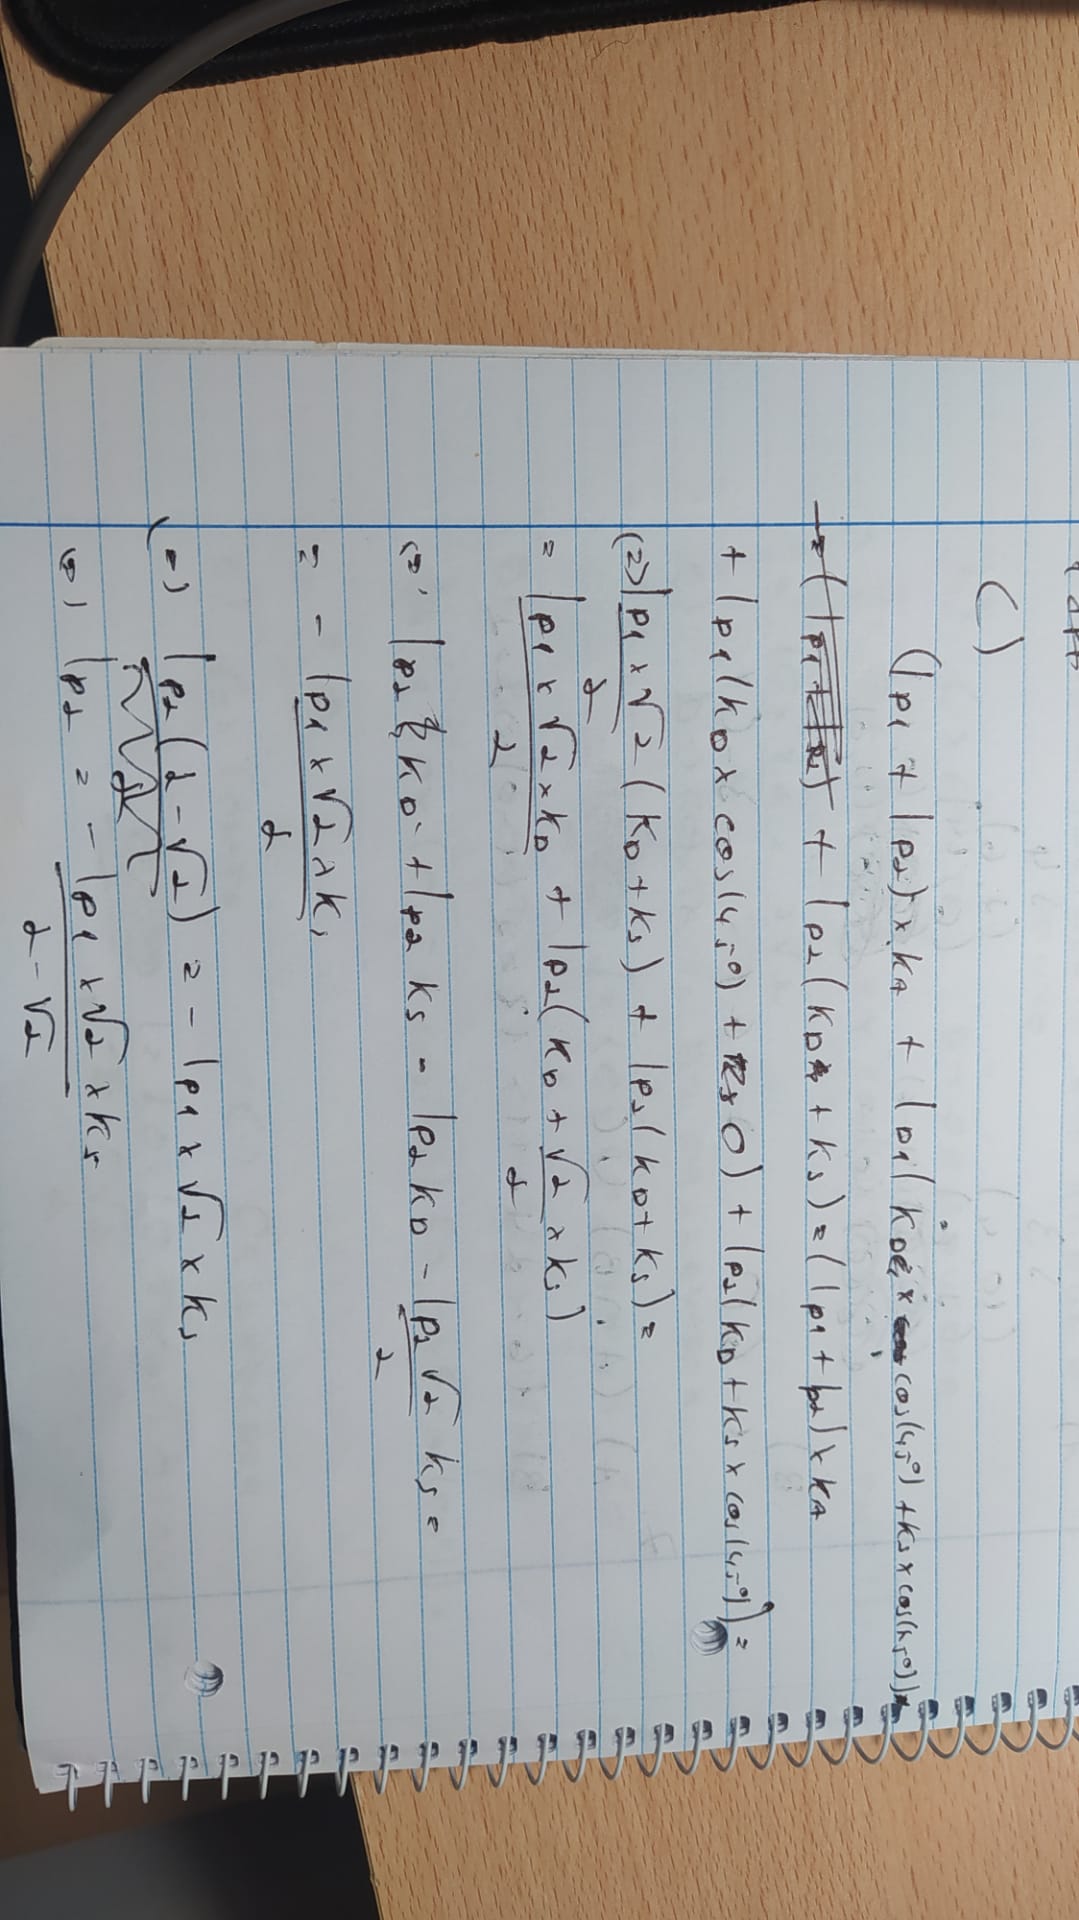 C)
(Ip1 + Ip2) × KA + Ip1( KD × cos(45°) + Ks × cos(45°))
+ Ip2 (KD + Ks) = (Ip1 + Ip2) × KA
+ Ip1(KD × cos(45°) + 0) + Ip2( KD + Ks × cos(45°)) =
(=) Ip1 × √2 / 2 (KD + Ks) + Ip2( KD + Ks) =
= Ip1 × √2 × KD / 2 + Ip2( KD + √2 / 2 × Ks)
(=) Ip2 KD + Ip2 Ks - Ip2 KD - Ip2 √2 / 2 Ks =
= - Ip1 × √2 × Ks / 2
(=) Ip2 (2 - √2) = - Ip1 × √2 × Ks
(=) Ip2 = - Ip1 × √2 × Ks / 2 - √2